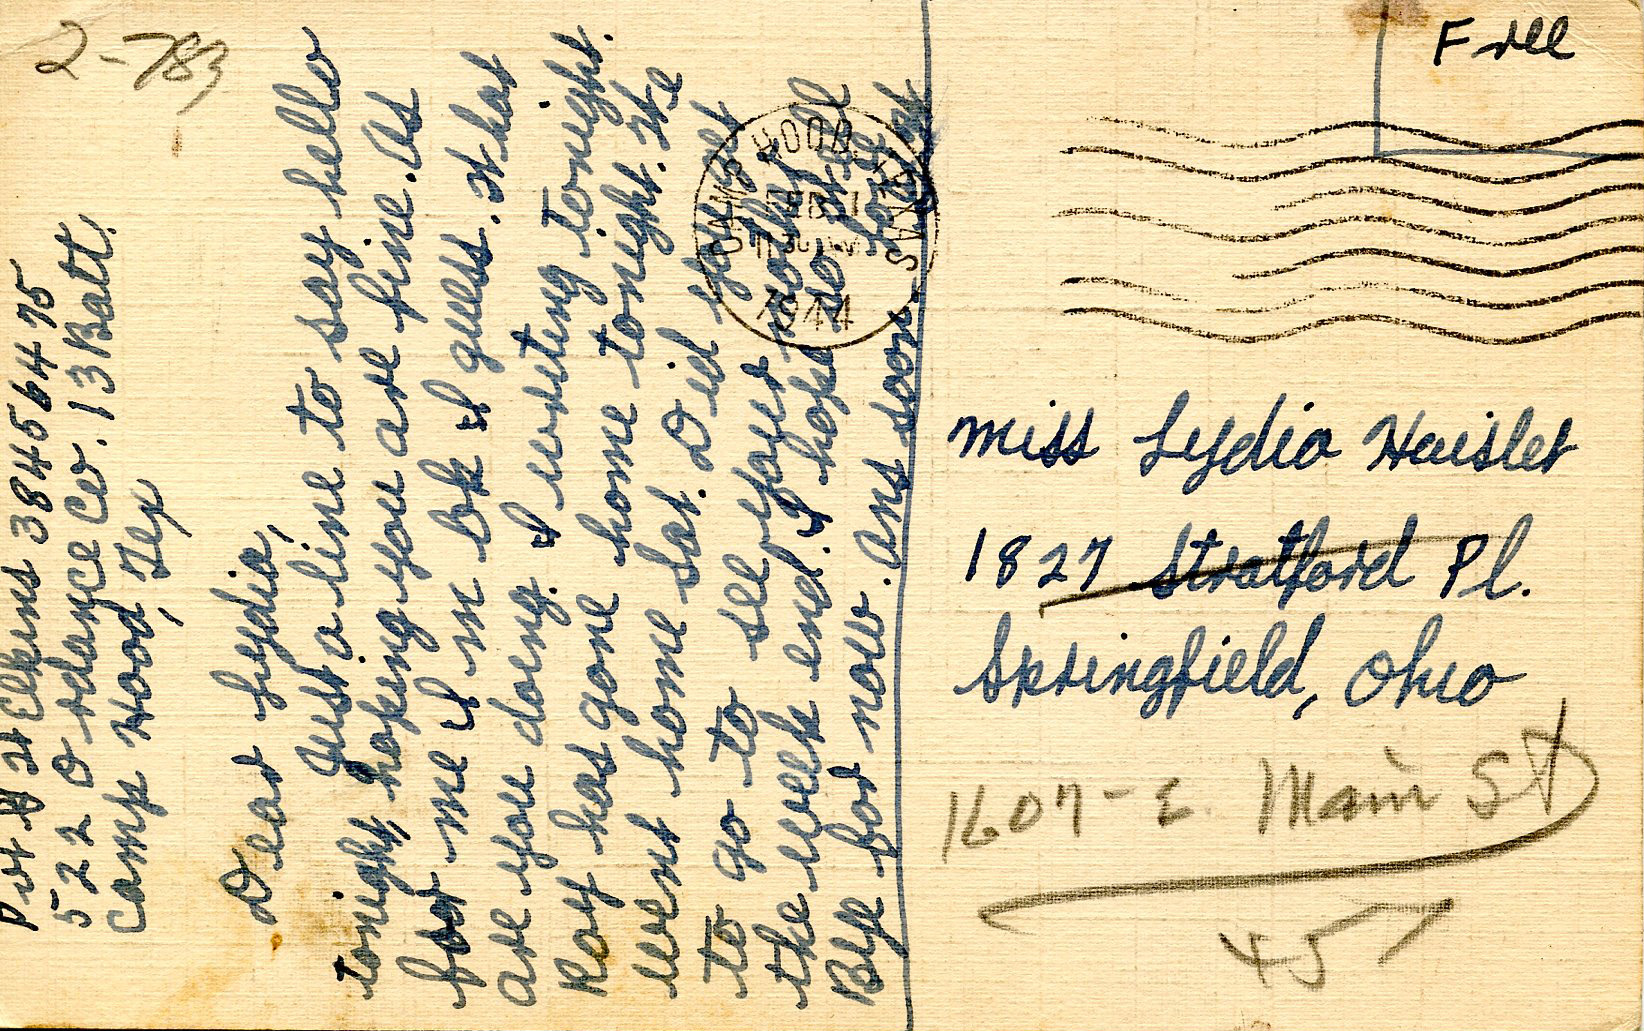 2-783
Pvt H St Elkins 38456475
522 Ordance Co. 13 Batt.
Camp Hood, Tex
Dear Lydia,
Just a line to say hello
tonight, hoping you are fine. As
for me I'm ok I guess. What
are you doing. I writing tonight.
Roy has gone home tonight. He
went home Sat. Did you get
to go to see your
the week end. I hope so
Bye for now. Ans soon.
CAMP HOOD, TEXAS
FEB 1
1944
Free
Miss Lydia Heisler
1827 Stratford Pl.
Springfield, Ohio
1607-E. Main St
45